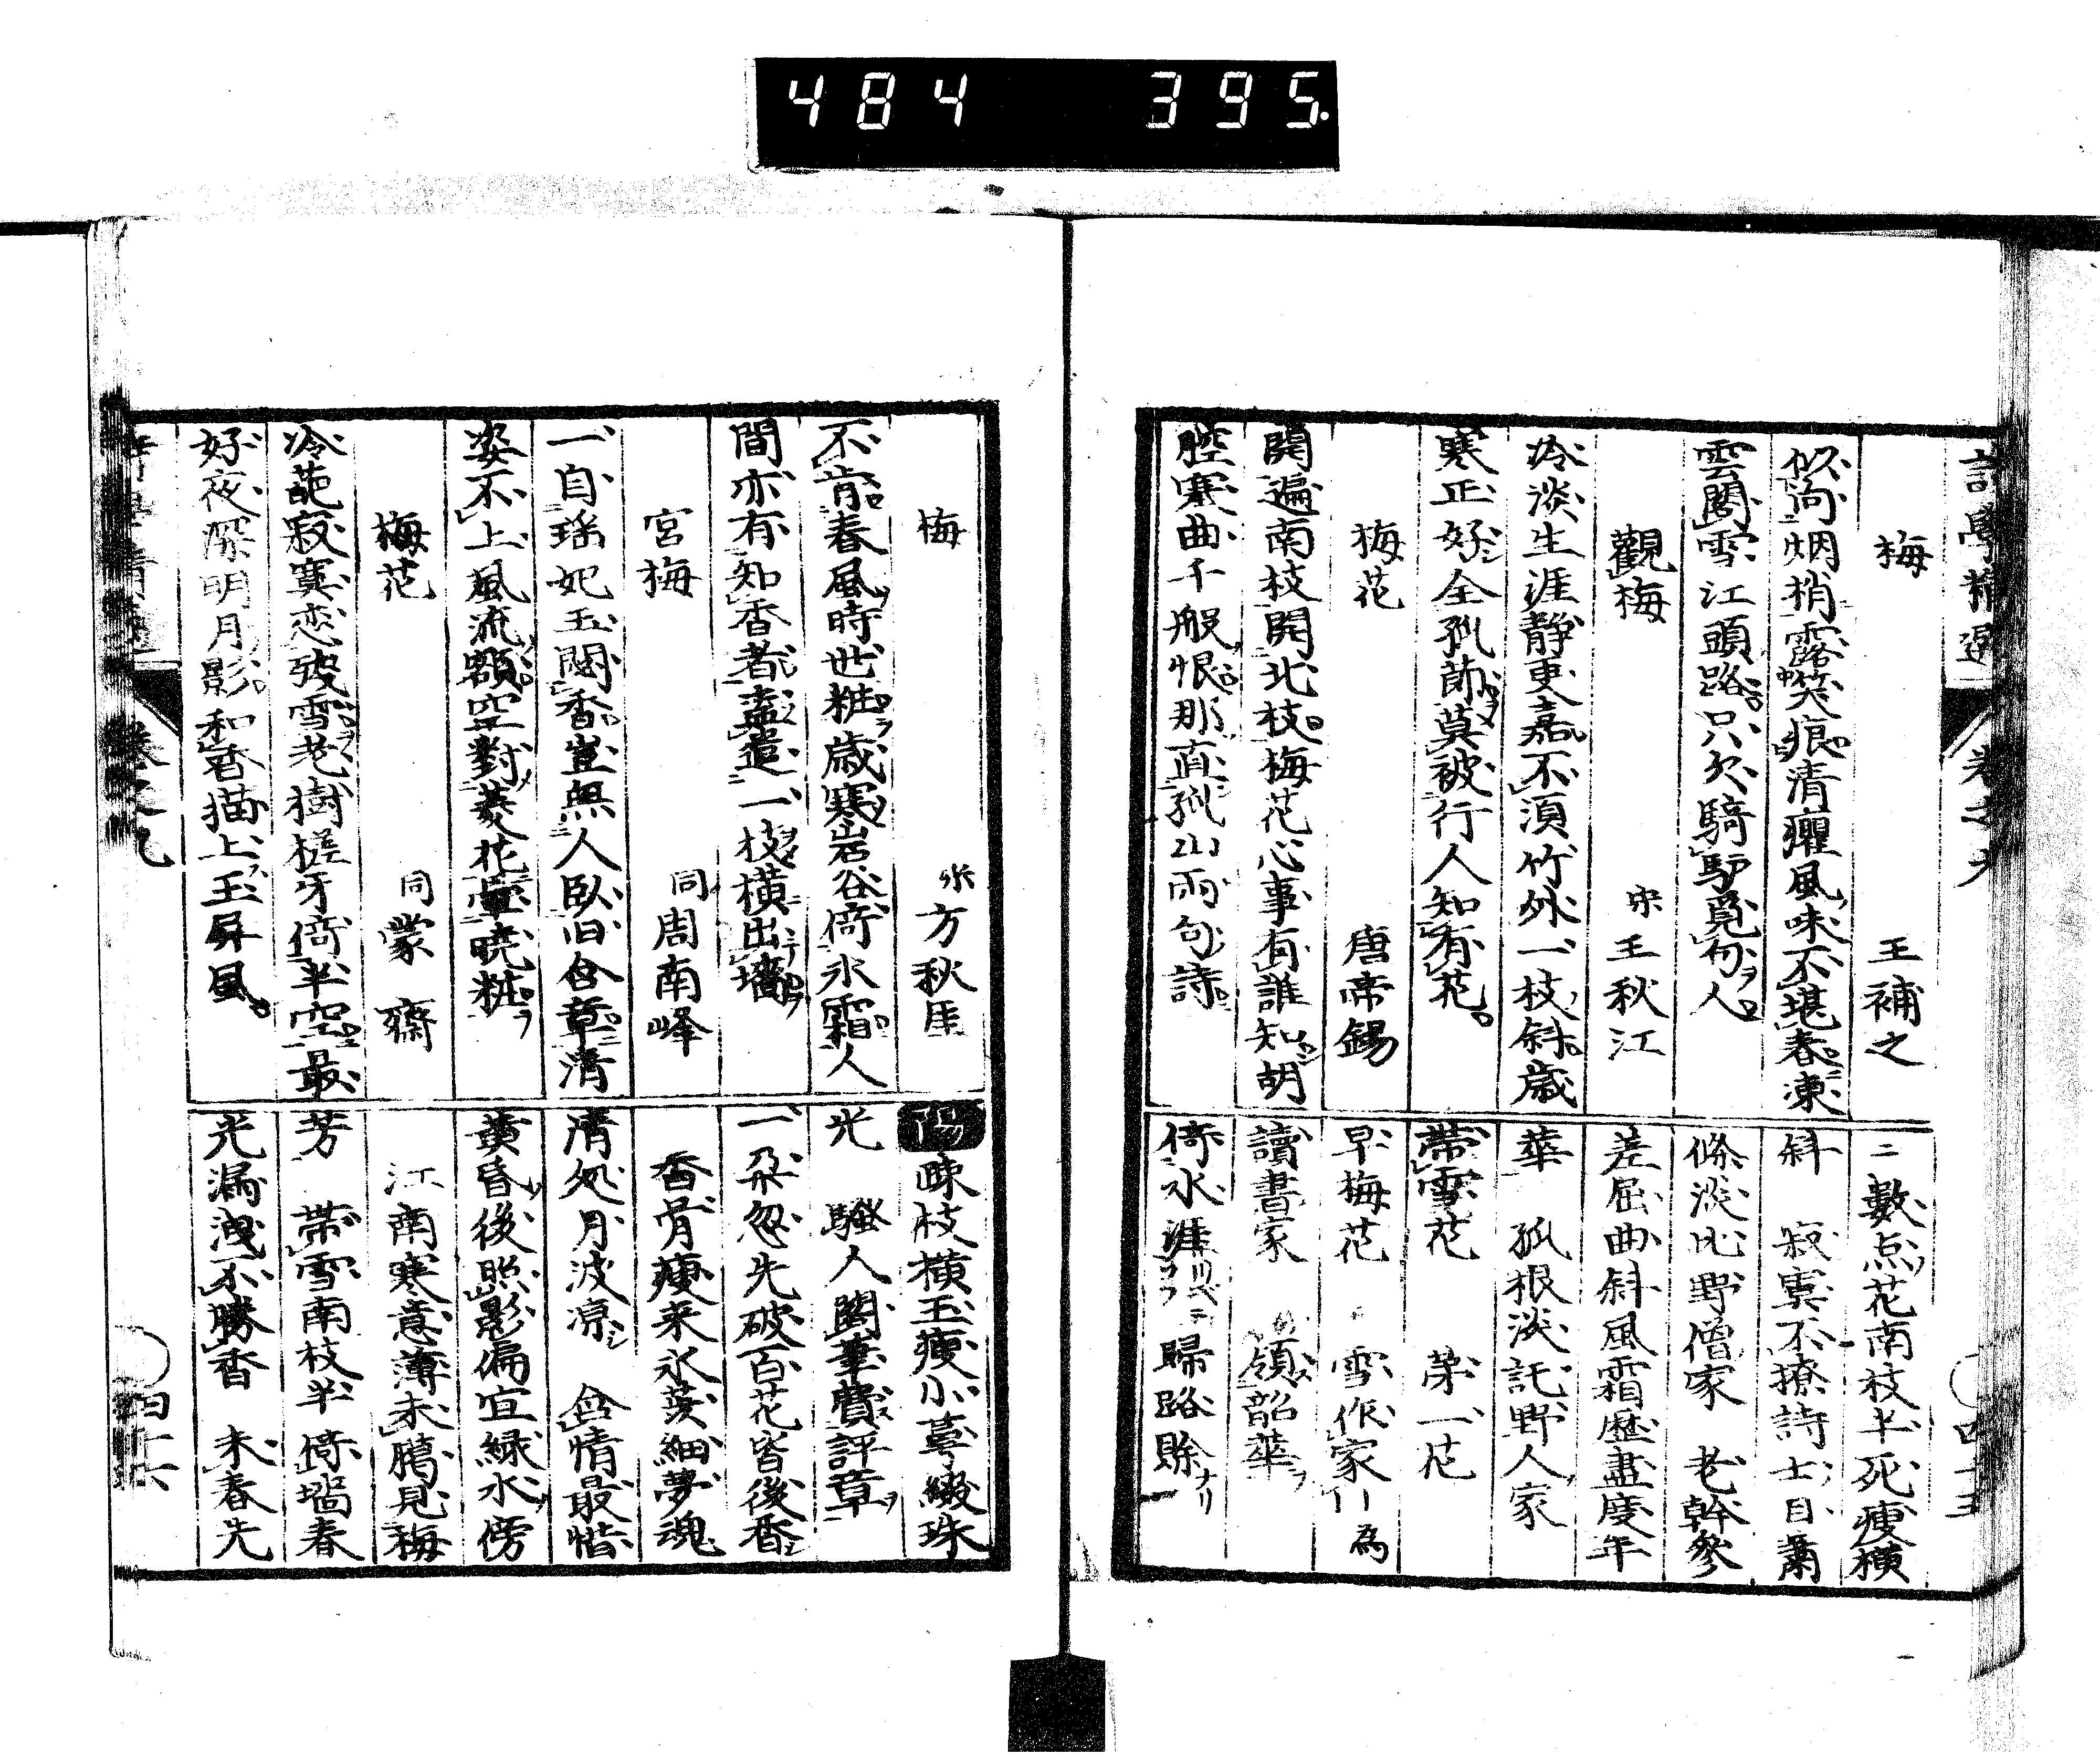 484 395.
詩學精選 卷之九
梅 王補之
似向烟梢露笑痕清癯風味不堪春凍
雲閣雪江頭路只欠騎馿覓句人
觀梅 宋王秋江
冷淡生涯靜更嘉不須竹外一枝斜歲
寒正好全孤節莫被行人知有花
梅花 唐帝錫
開遍南枝開北枝梅花心事有誰知胡
腔塞曲千般恨那直孤山兩句詩
二數点花南枝半死瘦橫
斜 寂寞不撩詩士目蕭
條淡比野僧家 老幹參
差屈曲斜風霜歴盡度年
華 孤根淡託野人家
帶雪花 第一花
早梅花 雪作家 為
讀書家 領韶華
倚水涯 歸路賖
四十五
梅 宋方秋厓
不肯春風時世粧歳寒岩谷倚氷霜人
間亦有知香者盍遣一枝橫出墻
宮梅 同周南峰
一自瑤妃玉闕香豈無人臥旧含章清
姿不上風流額空對菱花學暁粧
梅花 同蒙齋
冷葩寂寞恋殘雪老樹槎牙倚半空最
好夜深明月影和香描上玉屏風
陽 疎枝橫玉瘦小萼綴珠
光 騷人閣筆費評章
一朶忽先破百花皆後香
香骨瘦来氷蘂細夢魂
清処月波凉 含情最惜
黃昏後照影偏宜緑水傍
江南寒意薄未臈見梅
芳 帶雪南枝半倚墻春
光漏洩不勝香 未春先
卷之九
四十六